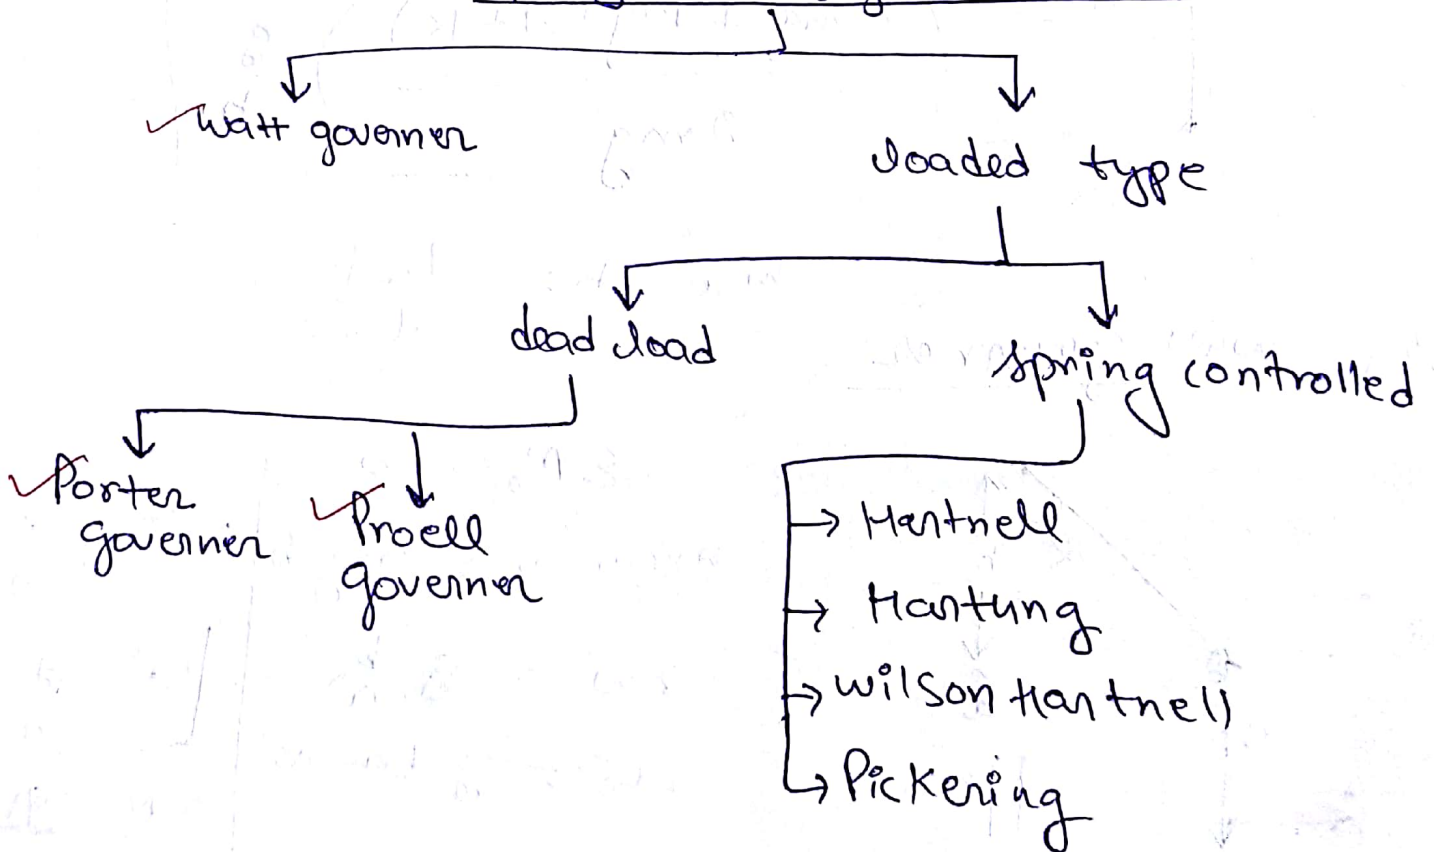 Watt governer
loaded type
dead load
spring controlled
Porter
governer
Proell
governer
Hartnell
Hartung
Wilson Hartnell
Pickering